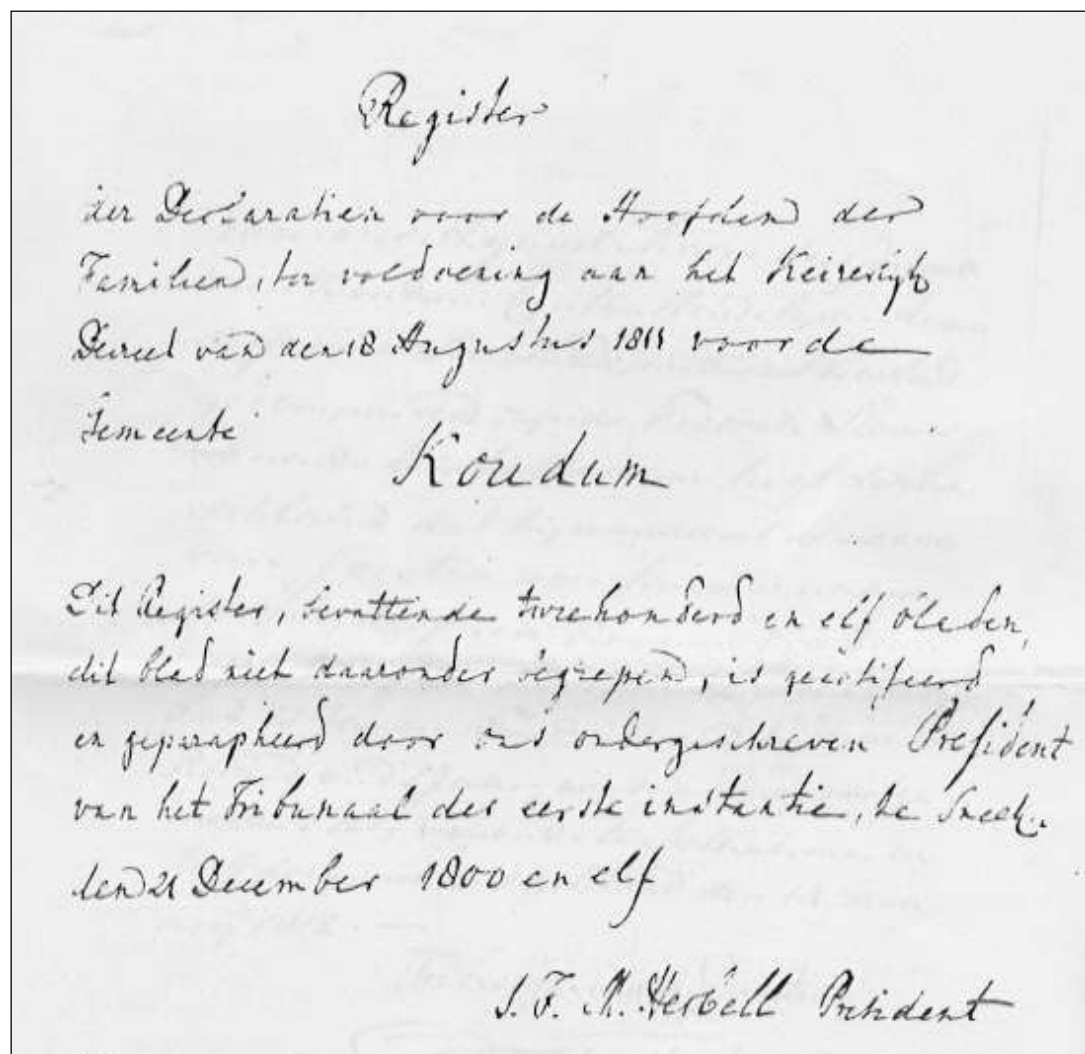 Register
der Declaratien voor de Hoofden der
Familien, ter voldoening aan het Keizerlyk
Decreet van den 18 Augustus 1811 voor de
Gemeente
Koudum
Dit Register, bevattende tweehonderd en elf bladen,
dit blad niet daaronder begrepen, is gecertifeerd
en geparapheerd door ons ondergeschreven President
van het Tribunaal der eerste instantie, te Sneek.
den 21 December 1800 en elf
J. F. M. Herbell President